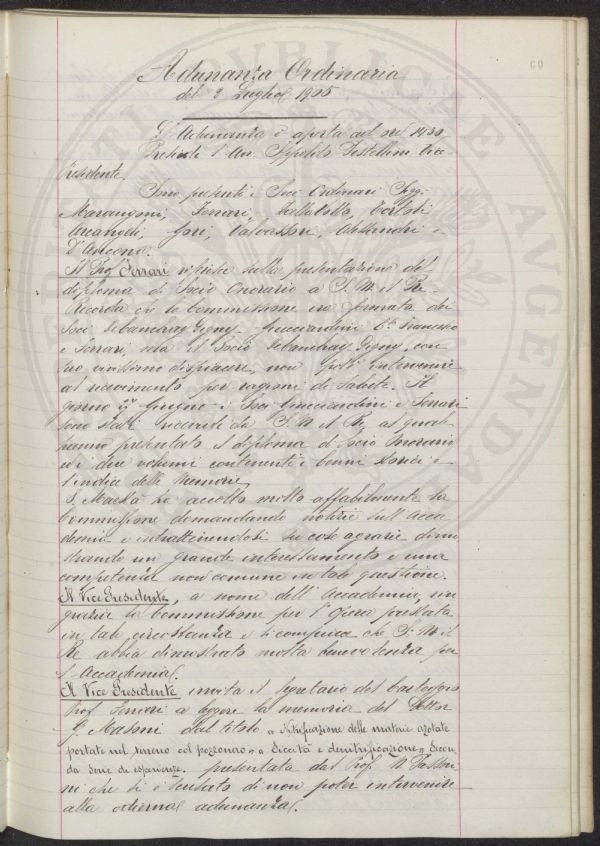 60
Adunanza Ordinaria
del 2 Luglio 1905
L'Adunanza è aperta ad ore 14,30
Presiede l'Avv. Ippolito Pestellini Vice
Presidente.
Sono presenti i Soci Ordinari Sigg.
Marangoni, Ferrari,
Arcangeli, Gori, Valvassori, Alessandri e
D'Ancona.
Il Prof. Ferrari riferisce sulla presentazione del
diploma di Socio Onorario a S. M. il Re.
Ricorda che la Commissione era formata dai
Soci Guicciardini Francesco
e Ferrari, ma il Socio con
suo vivissimo dispiacere, non potè intervenire
al ricevimento per ragioni di salute. Il
giorno Giugno i Soci Guicciardini e Ferrari
sono stati ricevuti da S. M. il Re, al quale
hanno presentato il diploma di Socio Onorario
ed i due volumi contenenti i cenni storici e
l'indice delle Memorie.
S. Maestà ha accolto molto affabilmente la
Commissione domandando notizie sull'Acca
demia e intrattenendosi su cose agrarie dimo
strando un grande interessamento e una
competenza non comune in tale questione.
Il Vice Presidente, a nome dell'Accademia, rin
grazia la Commissione per l'opera prestata
in tale circostanza e si compiace che S. M. il
Re abbia dimostrato molta benevolenza per
l'Accademia.
Il Vice Presidente invita il Segretario del carteggio
Prof. Ferrari a leggere la memoria del Dottor
G. Masoni dal titolo « Nitrificazione delle materie azotate
portate nel terreno col pozzonero » « Siccità e denitrificazione » Secon
da serie di esperienze. presentata dal Prof. N. Passeri
ni che si è scusato di non poter intervenire
alla odierna adunanza.